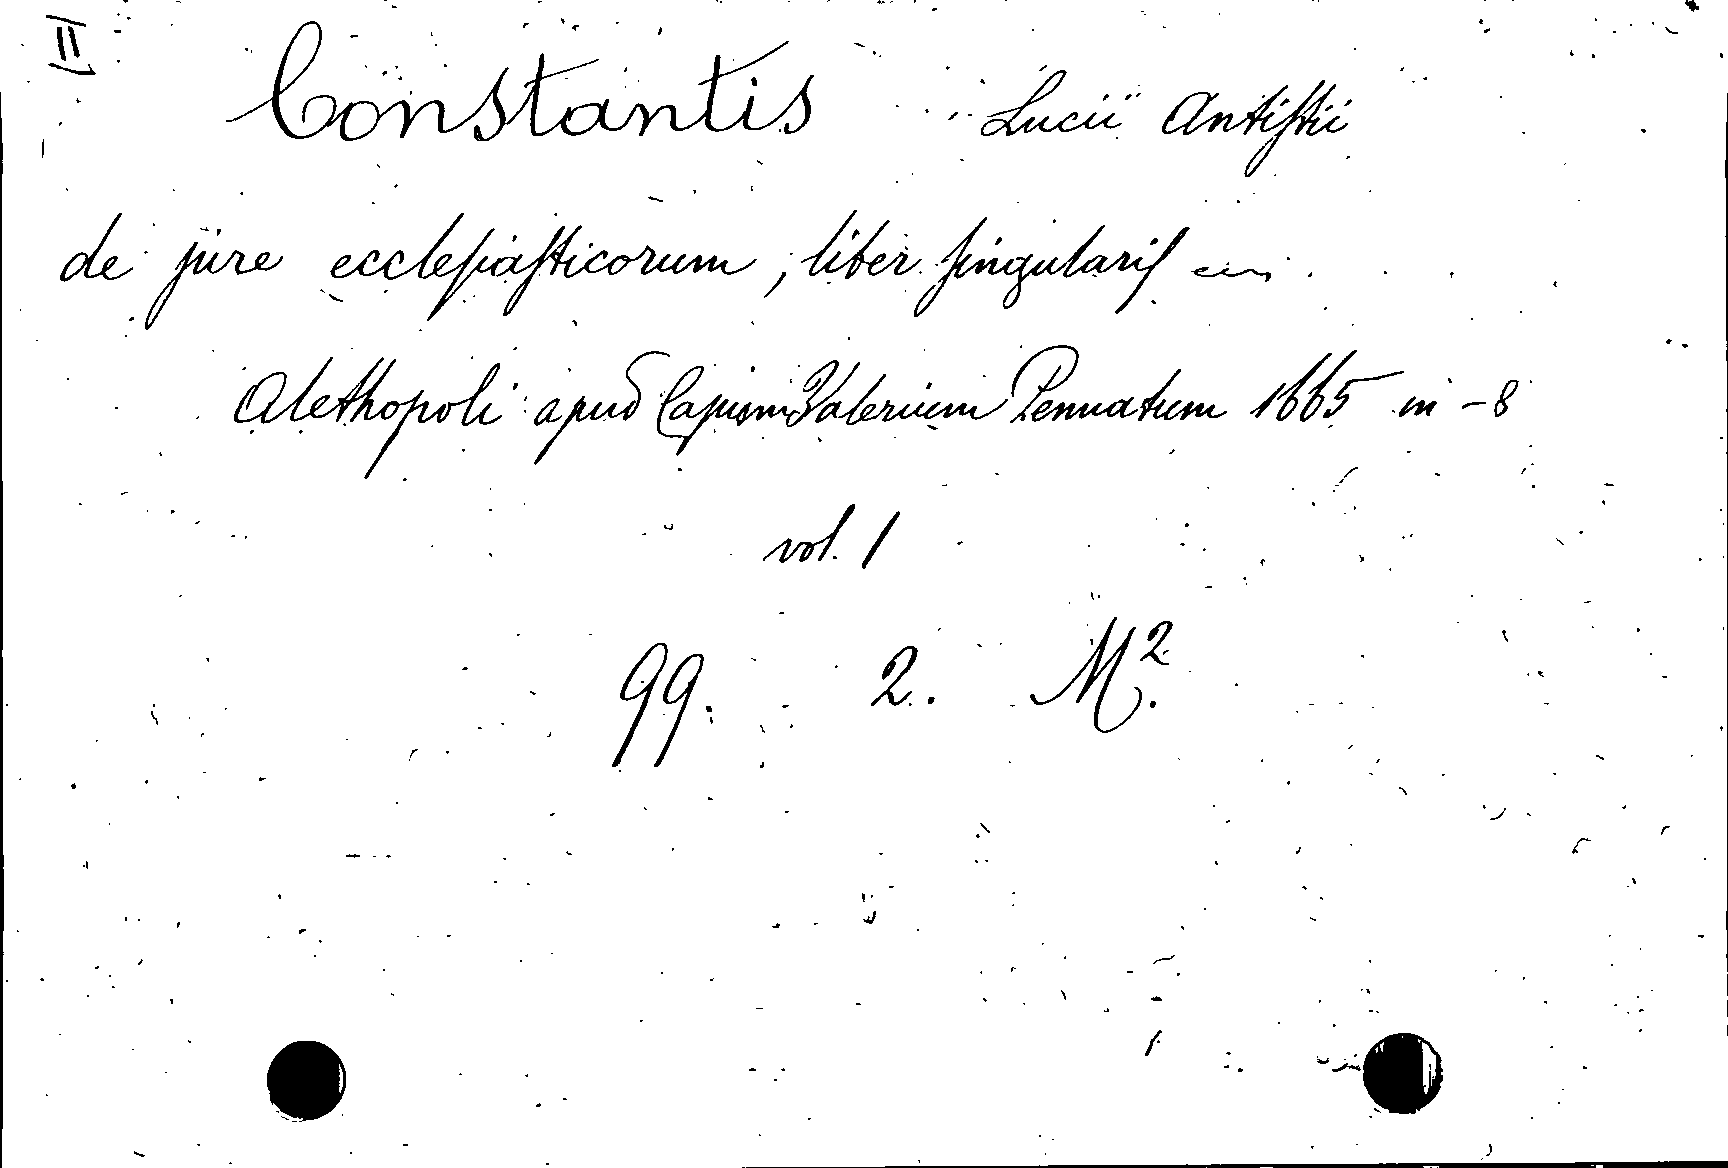 II
Constantis Lucii Antistii
de jure ecclesiasticorum, liber singularis
Alethopoli apud Cajum Valerium Pennatum 1665 in-8
vol. 1
99. 2. M².